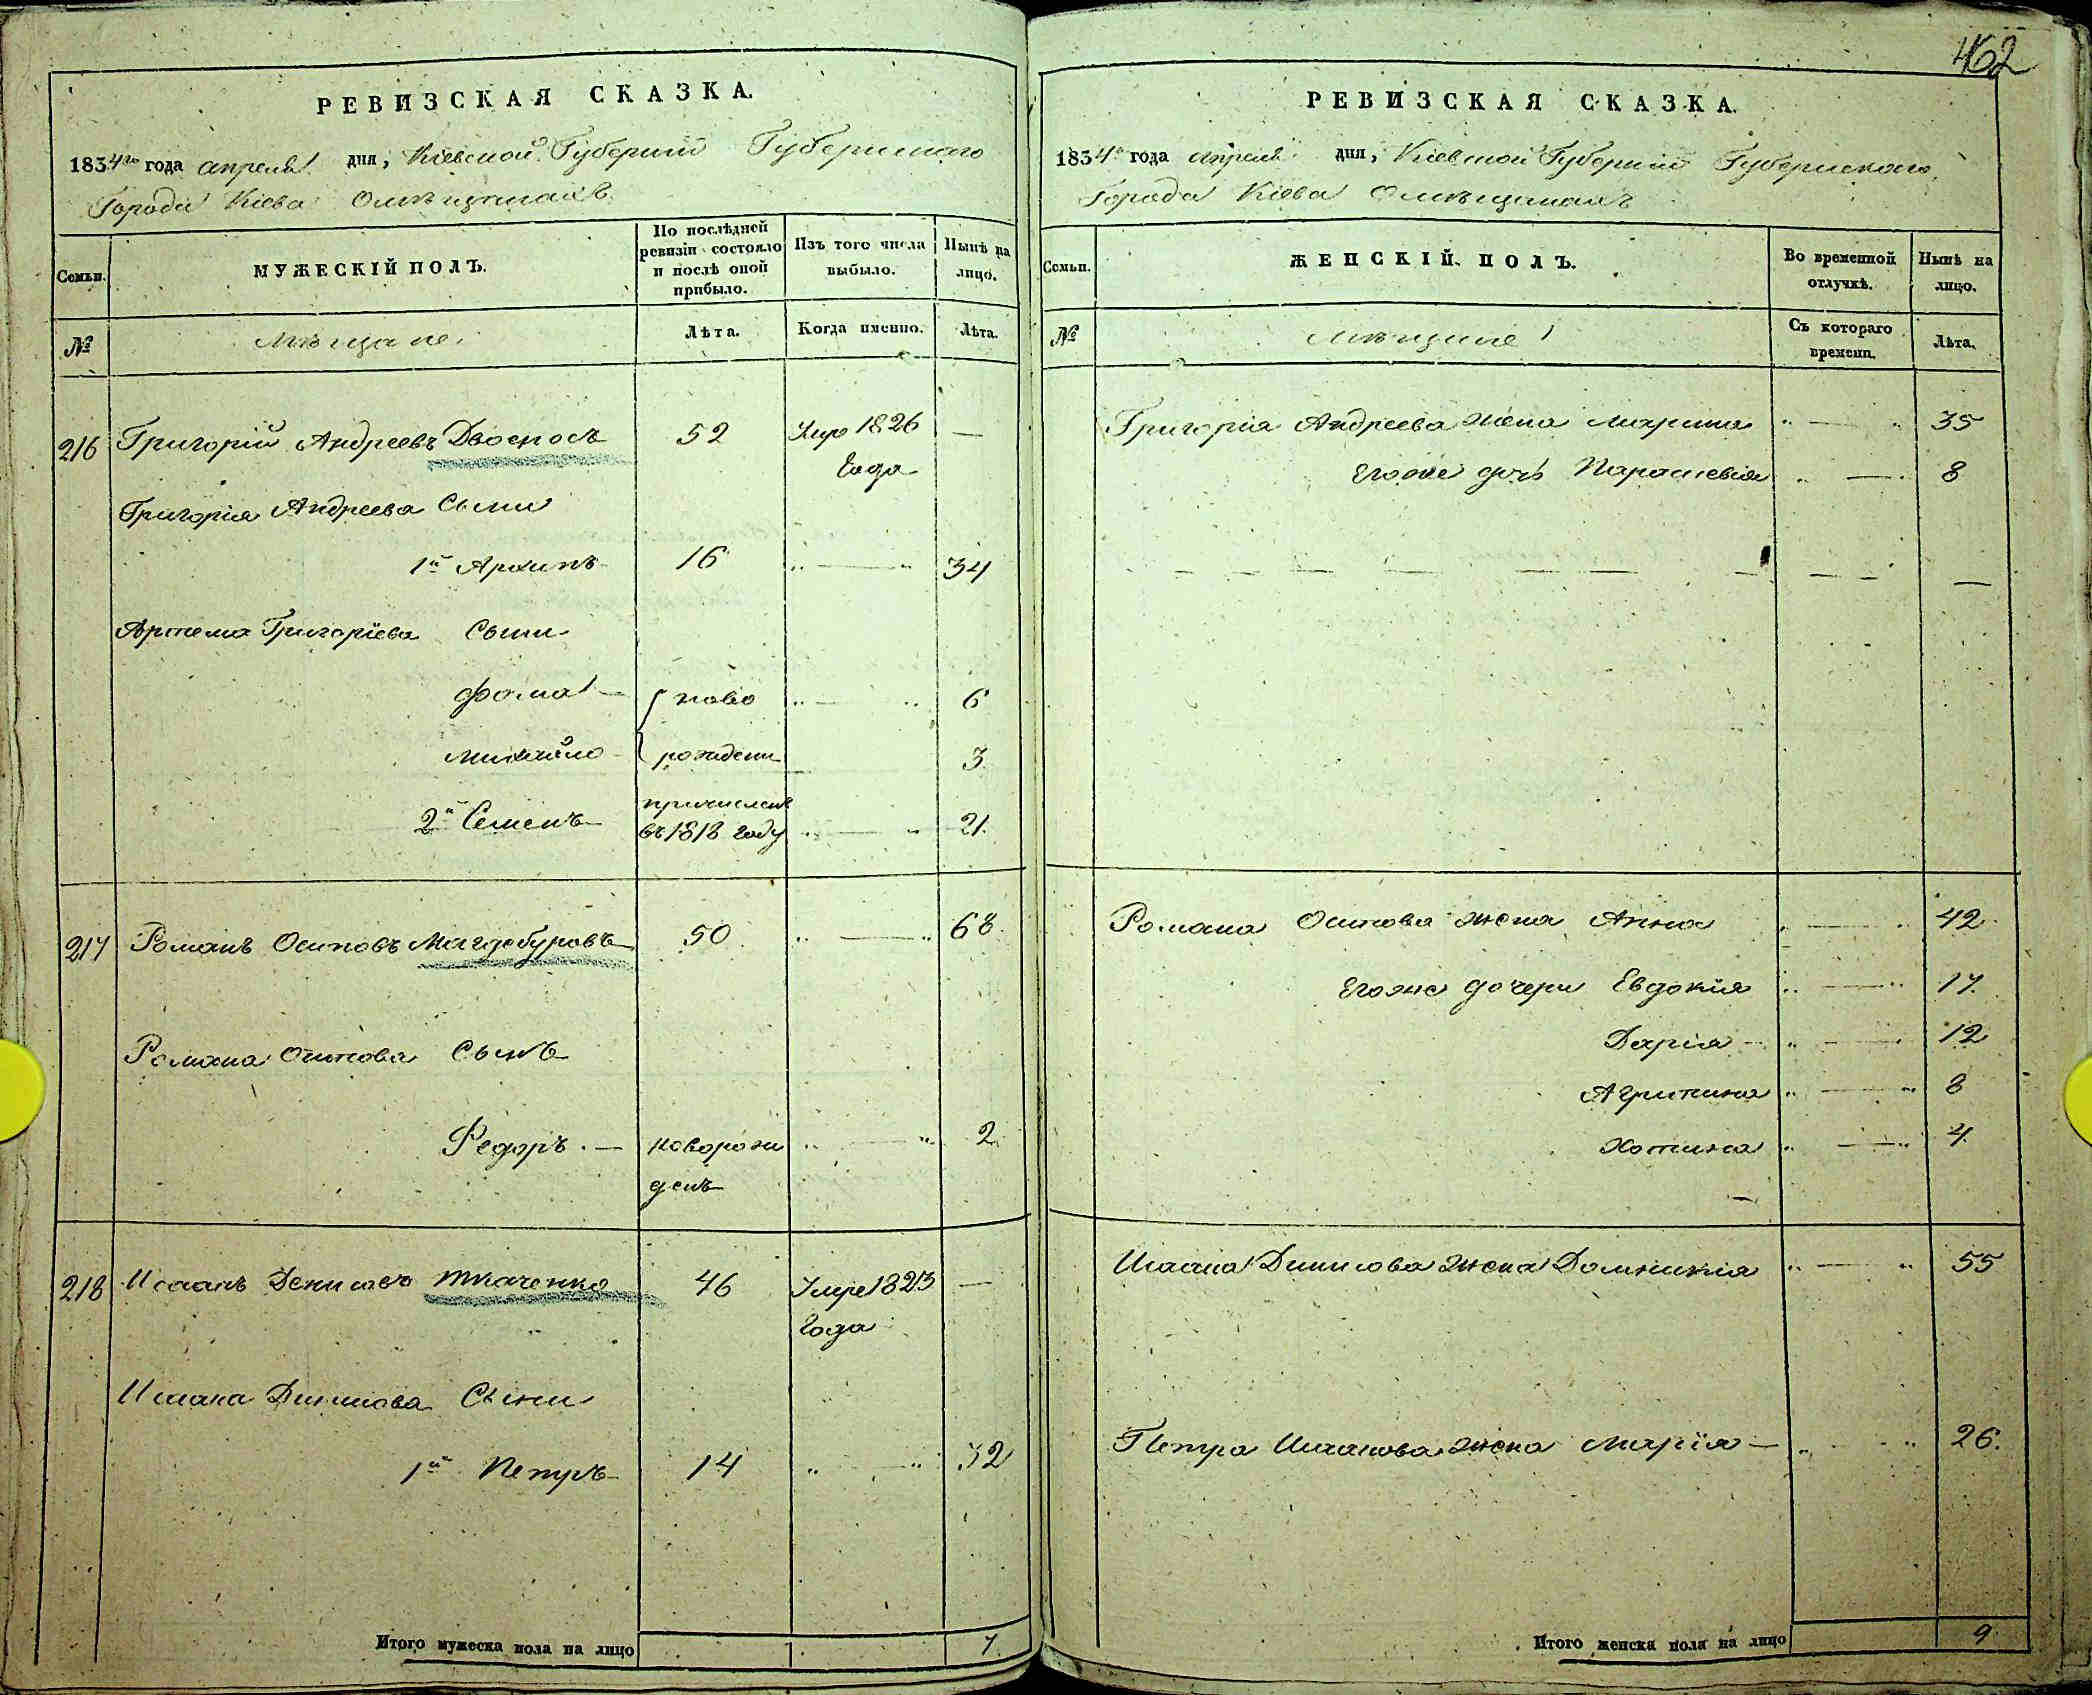 462
РЕВИЗСКАЯ СКАЗКА.
1834го года апреля дня, Кіевской Губерніи Губернскаго
Города Кіева О мѣщанахъ
Семьи.
МУЖЕСКІЙ ПОЛЪ.
По послѣдней ревизіи состояло и послѣ оной прибыло.
Изъ того числа выбыло.
Нынѣ на лицо.
№
Мѣщане
Лѣта.
Когда именно.
Лѣта.
216 Григорій Андреевъ Двоеносъ 52 Умре 1826 —
Года
Григорія Андреева Сыни
1й Архипъ 16 " — " 34
Артема Григоріева Сыни
Фома — ново " — " 6
Михайло рожденн 3
2й Семенъ причисленъ
въ 1818 году " — " 21
217 Романъ Осиповъ Магдебуровъ 50 " — " 68
Романа Осипова Сынъ
Федоръ — новорож " — " 2
денъ
218 Исаакъ Денисовъ Ткаченко 46 Умре 1823 —
Года
Исаака Денисова Сыни
1й Петръ 14 " — " 32
Итого мужеска пола на лицо 7.
РЕВИЗСКАЯ СКАЗКА.
1834го года апреля дня, Кіевской Губерніи Губернскаго
Города Кіева О мѣщанахъ
Семьи.
ЖЕНСКІЙ ПОЛЪ.
Во временной отлучкѣ.
Нынѣ на лицо.
№
Мѣщане
Съ котораго времени.
Лѣта.
Григорія Андреева жена Марина " — " 35
Егоже дочь Параскевія " — " 8
— — — — — — — — —
Романа Осипова жена Анна " — " 42
Егоже дочери Евдокія " — " 17
Дарія — " — " 12
Агрипина " — " 8
Хотина " — " 4
Исаака Денисова жена Домникія " — " 55
Петра Исаакова жена Марія — " — " 26.
Итого женска пола на лицо 9